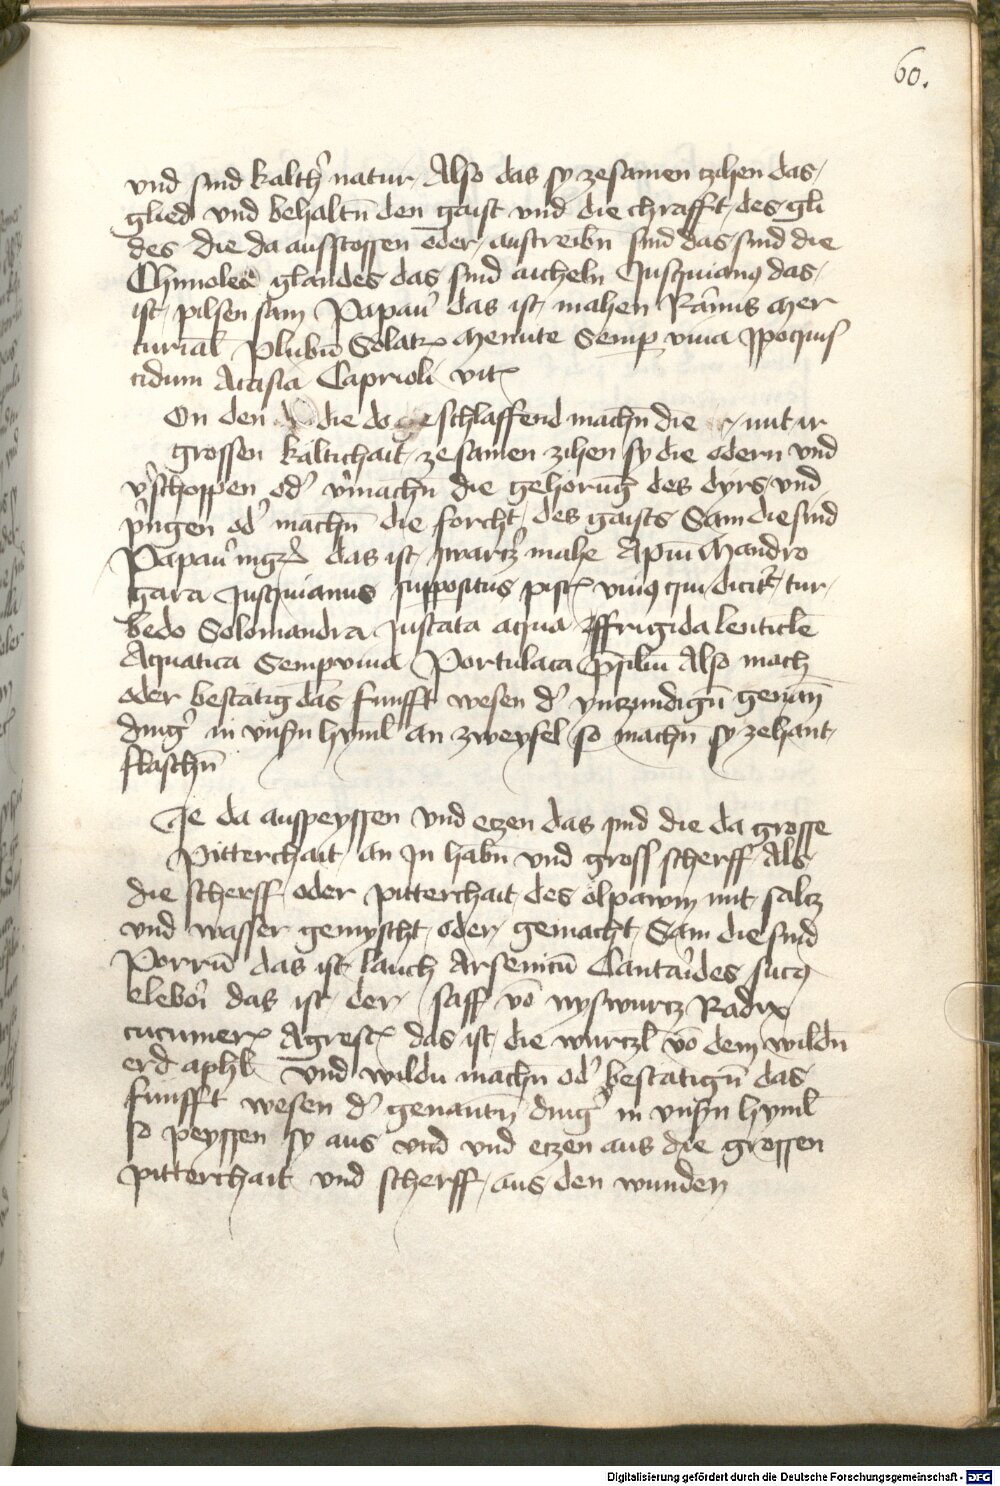 60.
vnd sind kaltħ natur Also das sy zesamen czihen das
glied vnd behaltn̄ den gaist vnd die chrafft des gli
des die da ausstossen oder austreibn̄ sind das sind die
Chimolea glandes das sind aicheln Jusquiamꝯ das
ist pilsen sam Papau᷑ das ist mahen mer
curial Plubiū Solatꝝ Mente Semp viua Jpoquis
cidum Acasia Caprioli vitꝭ
On den die do schlaffend machn̄ die mit ir
grossen kaltichait zesamen zihen sy die odern vnd
v᷑schoppen od᷑ v᷑machn̄ die gehorūg des dyrs vnd
v᷑ngen od᷑ machn̄ die forcht des gaists Sam die sind
Papau᷑ nig᷑ das ist swartz᷑ mahe Apiū Mandro
gara Jusquianus suppositus pistꝭ vnnꝯ qui dicit᷑ tur
bedo Solomandra Justata aqua frigida lenticle
Aquatica Sempviua Portulaca Psiliū Also mach
oder bestatig das funfft wesen d᷑ ynczundign̄ genan̄
ding᷑ in vnsn̄ hyml̄ an zweyfel so machn̄ sy zehant
slaffn̄
Je da auspeyssen vnd eczen das sind die da grosse
Pitterchait an Jn habn̄ vnd gross scherff Als
die scherff oder pitterchait des ölpawm mit salcz
vnd wasser gemyscht oder gemacht Sam die sind
Porrū das ist lauch Arsenicū Cantarides sucꝯ
elebori das ist der saff vō nyswurcz Radix
cucumerꝭ Agrestꝭ das ist die wurczl vō dem wildn̄
erd aphl vnd wildu machn̄ od᷑ bestatign̄ das
funfft wesen d᷑ genantn̄ ding᷑ in vnsn̄ hyml̄
so peyssen sy aus vnd vnd eczen aus die grossen
pitterchait vnd scherff aus den wunden
Digitalisierung gefördert durch die Deutsche Forschungsgemeinschaft - DFG